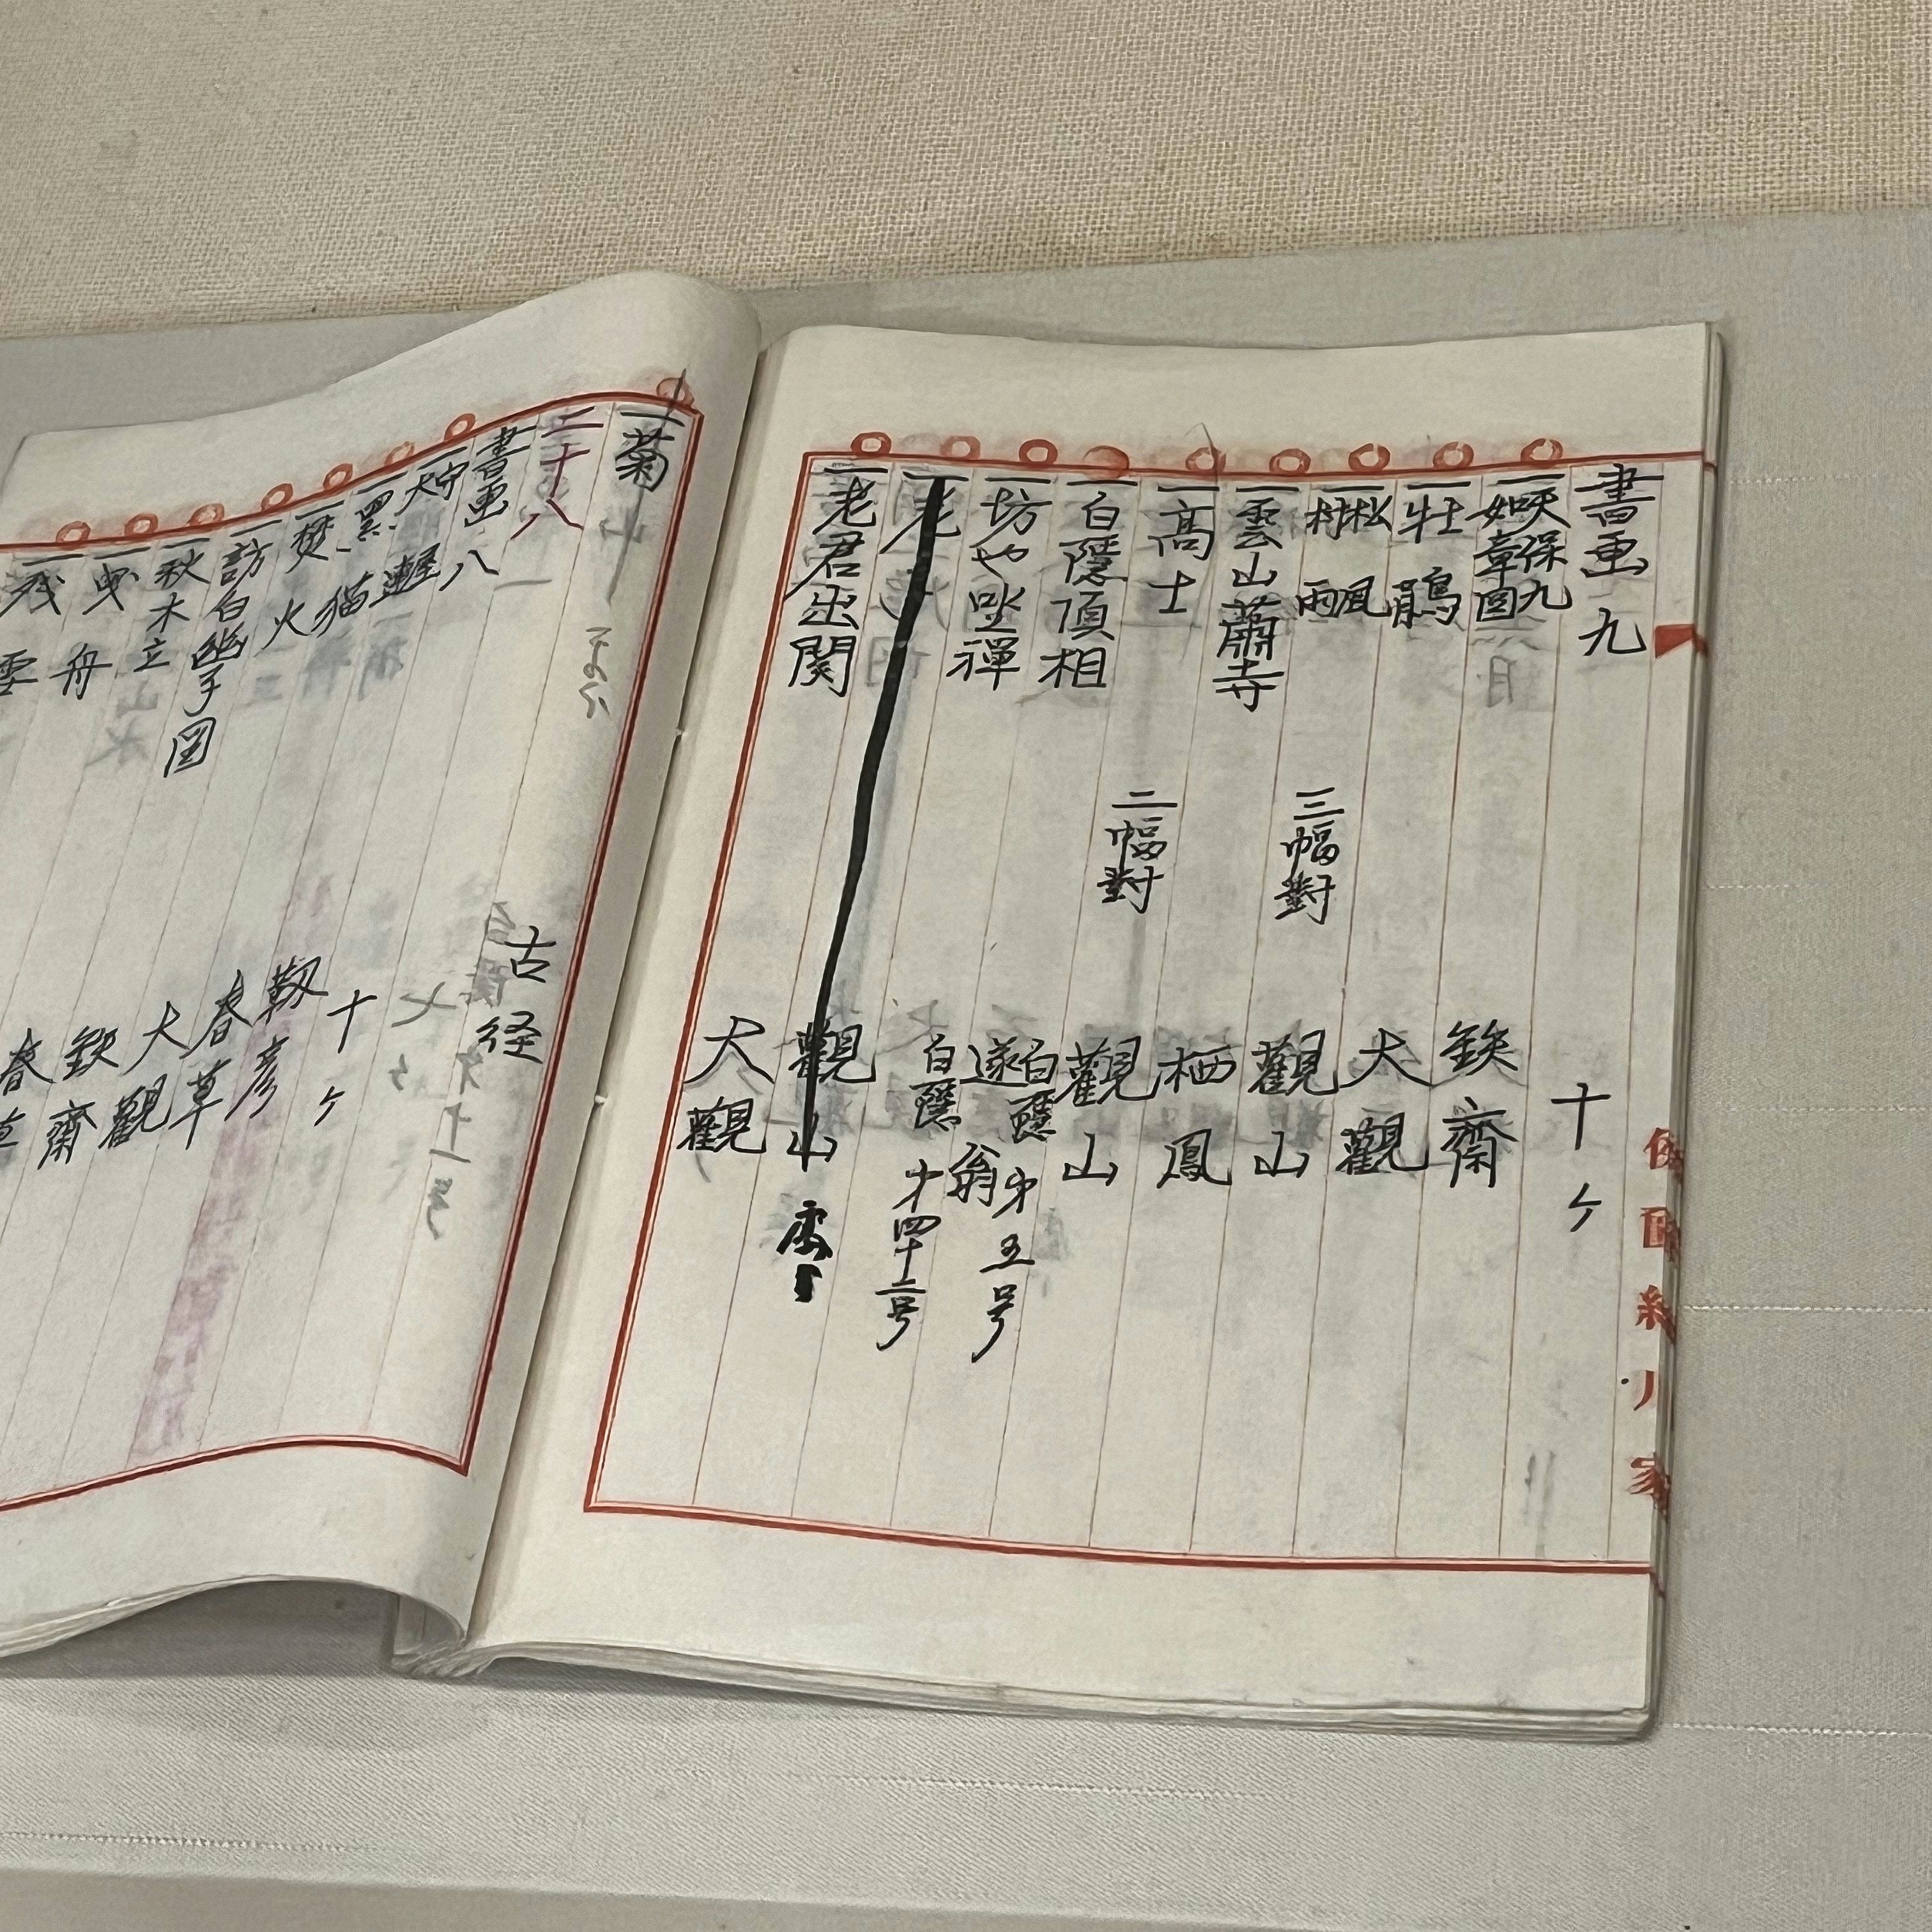 一書画九 十ケ
一天保九如章図 鉄齋
一牡鵑 大觀
一松風村雨 三幅對 觀山
一雲山蕭寺 栖鳳
一高士 二幅對 觀山
一白隱頂相 白隱 遂翁 才五号
一坊也坐禪 白隱 才四十二号
一老 觀山
一老君出関 大觀
侯爵細川家
一菊
二十八
一書画八 古経
七ケ
十ケ
一黒猫
一焚火 靱彦
一訪白幽子図 春草
一秋木立 大觀
一曳舟 鉄齋
一残雪 春草